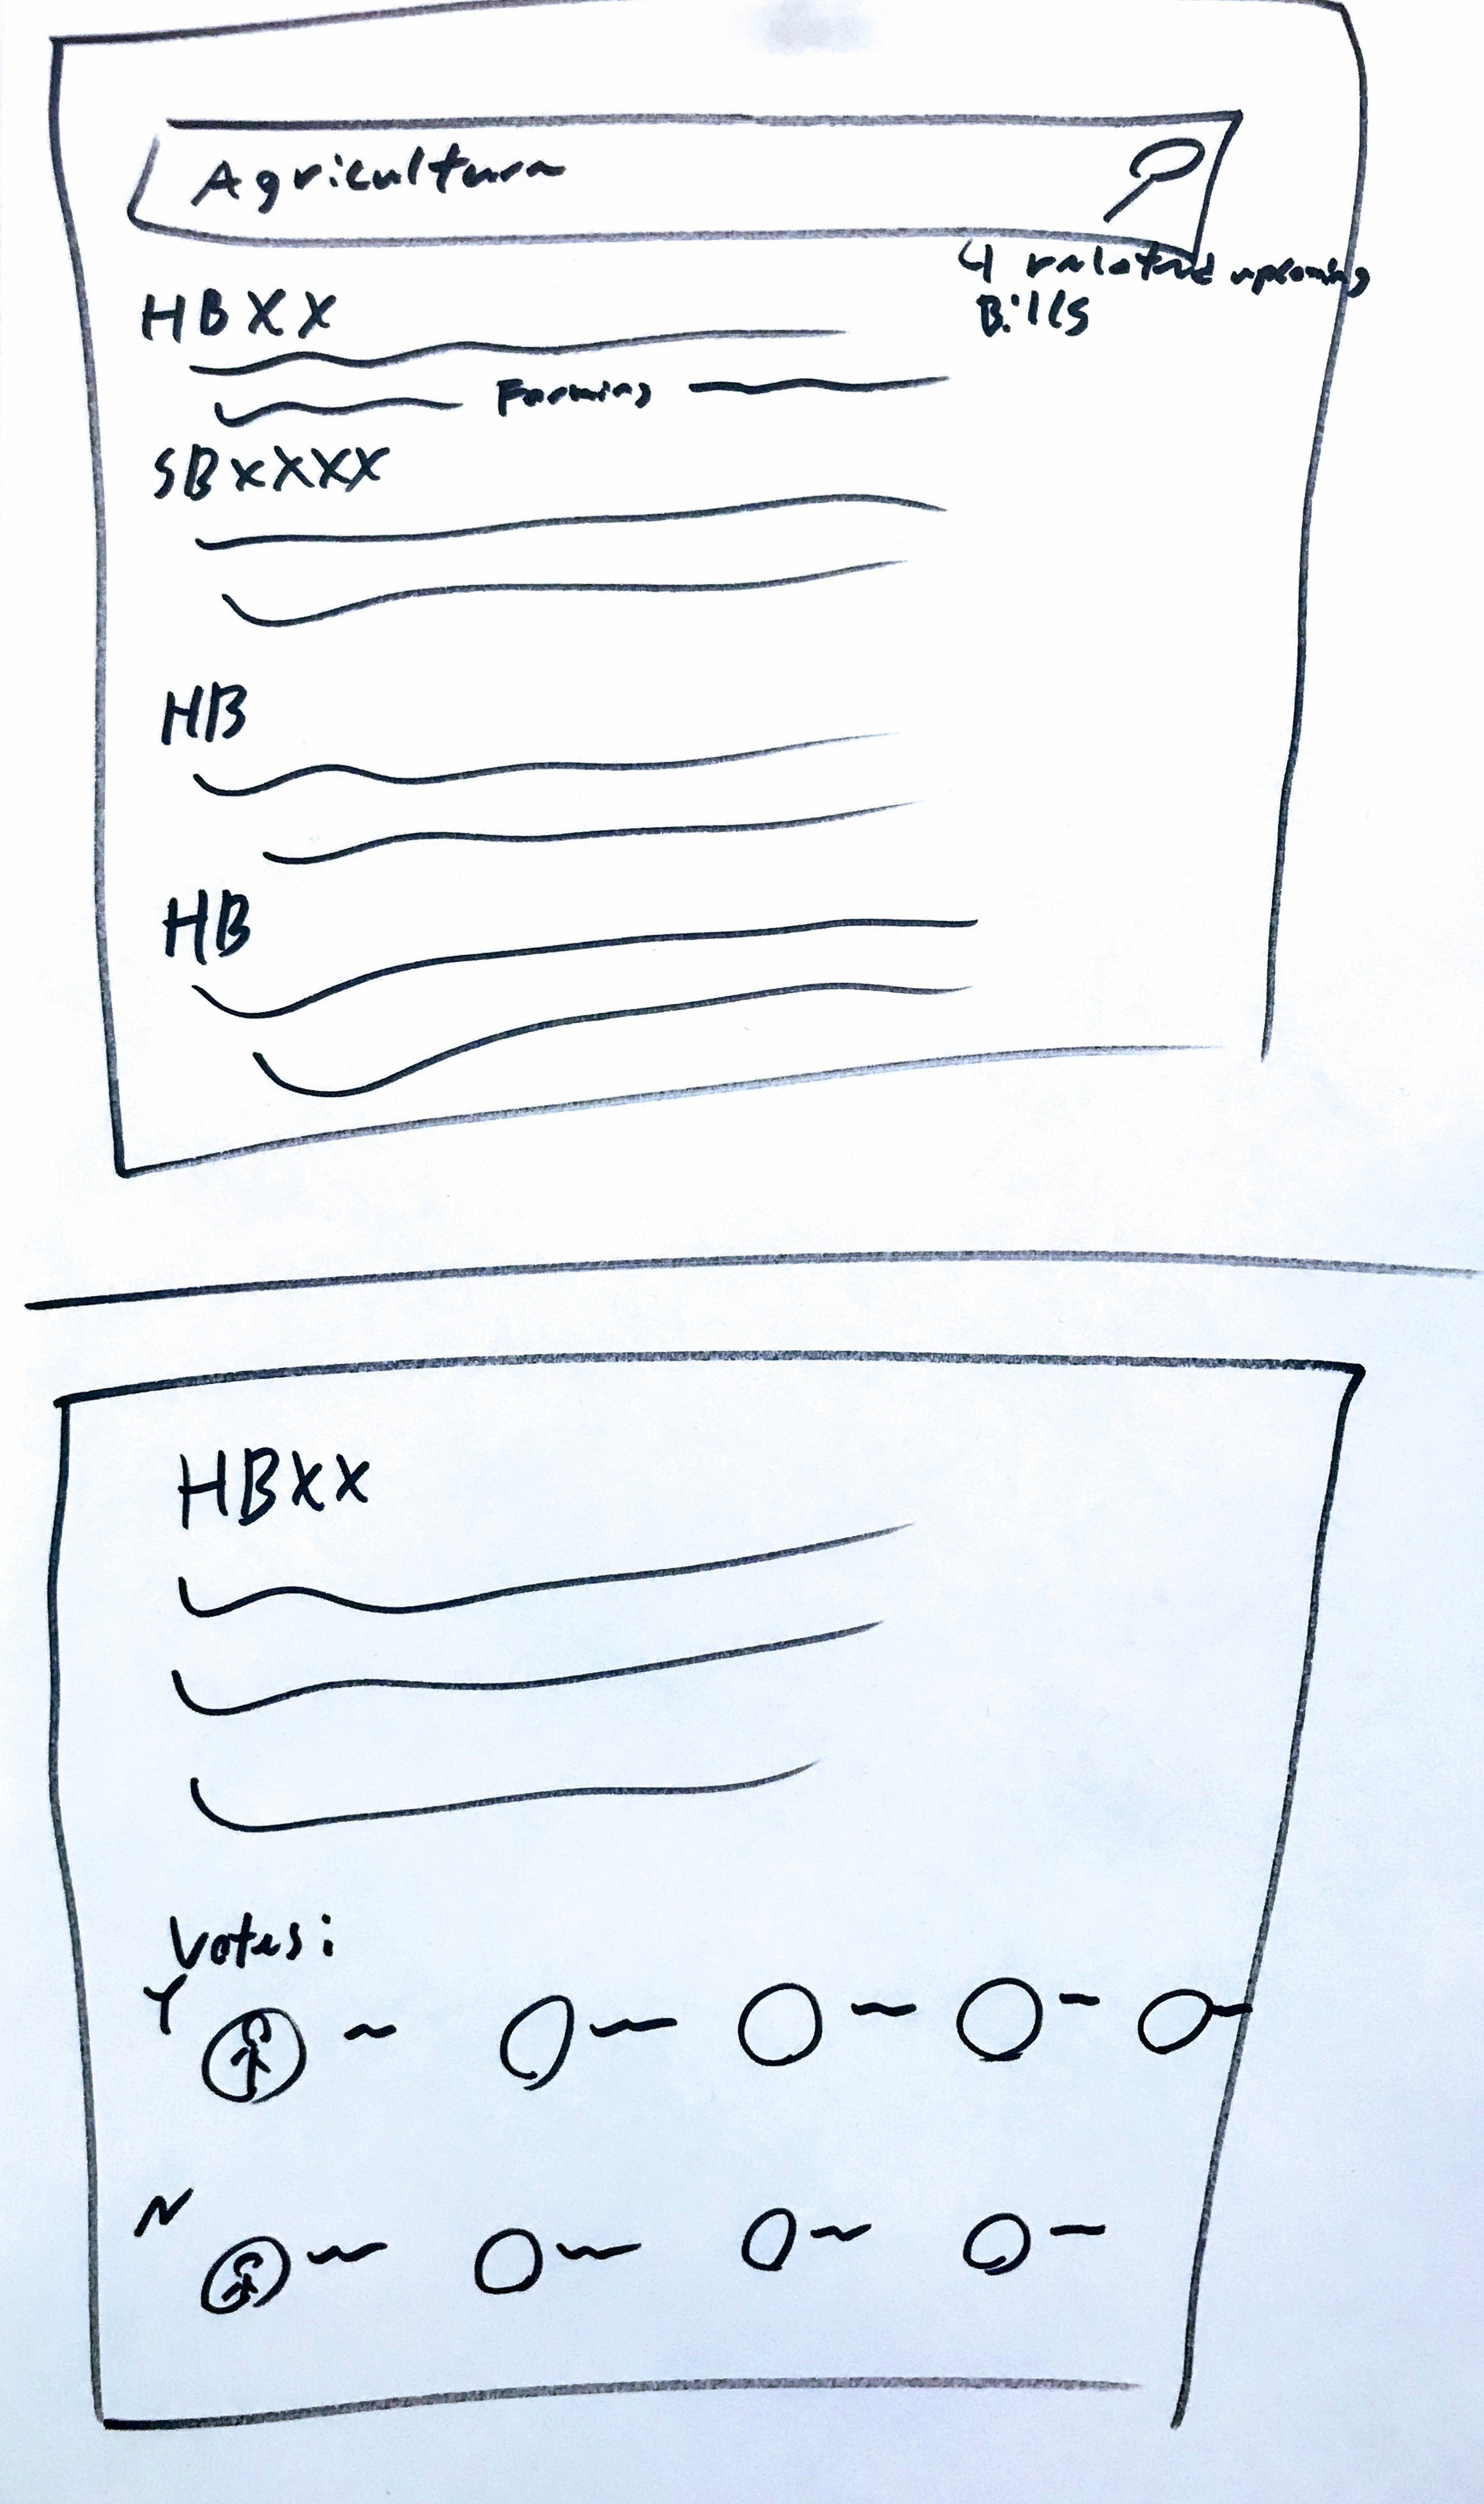 Agriculture
4 related upcoming
Bills
HBXX
Farming
SBXXXX
HB
HB
HBXX
Votes:
Y
N